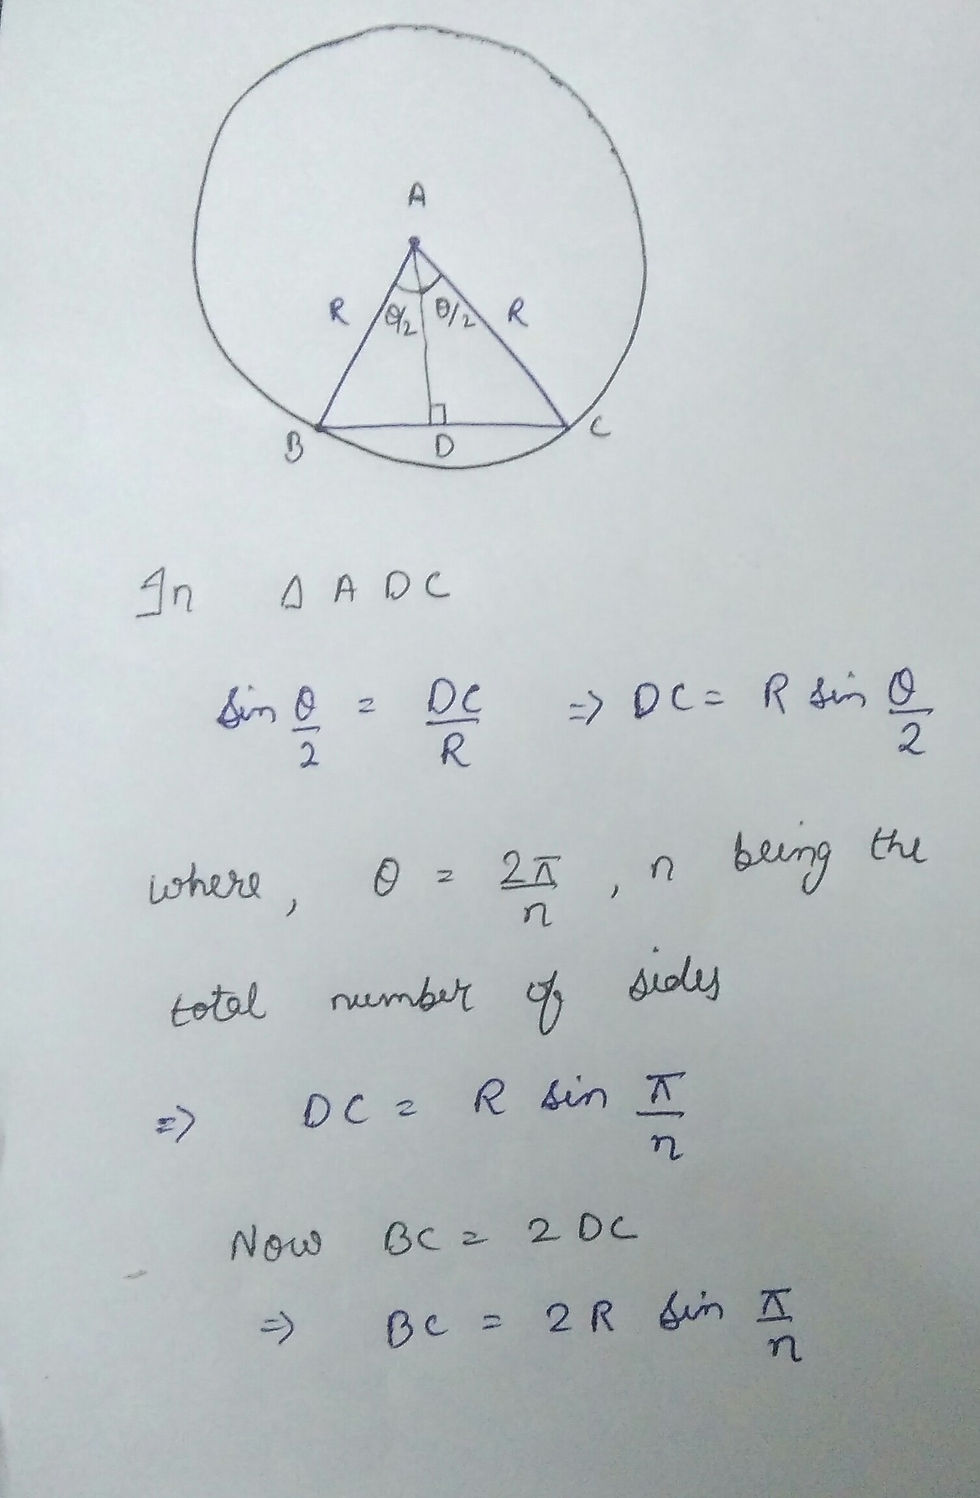 A
R θ/2 θ/2 R
B D C
In Δ ADC
sin θ/2 = DC/R => DC = R sin θ/2
where, θ = 2π/n, n being the
total number of sides
=> DC = R sin π/n
Now BC = 2DC
=> BC = 2R sin π/n